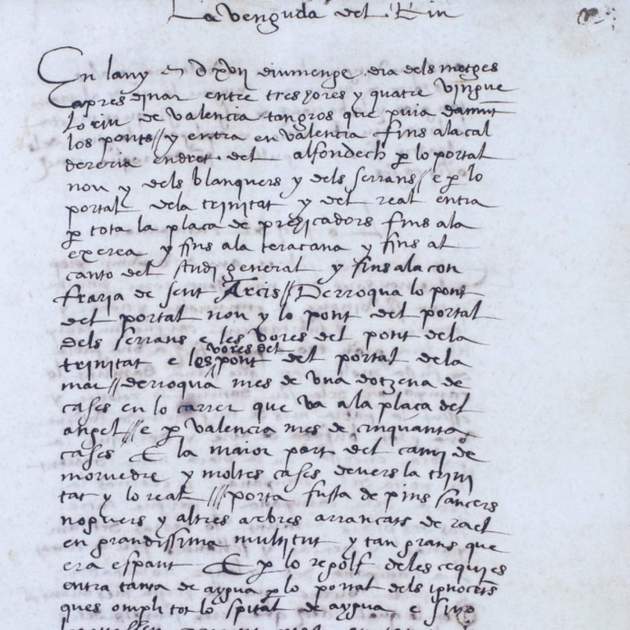 La venguda del Riu
En lany m d xvii diumenge dia dels metges
apres dinar entre tres hores y quatre vingue
lo riu de valencia tan gros que puia damunt
los ponts // y entra en valencia fins ala cal
dereria endret del alfondech p lo portal
nou y dels blanquers y dels serrans // e p lo
portal dela trinitat y del real entra
p tota la plaça de prehicadors fins ala
exerea y fins ala teraçana y fins al
canto del studi general y fins ala con
fraria de sent Arcis // Derroqua lo pont
del portal nou y lo pont del portal
dels serrans e les vores del pont dela
trinitat e les vores del pont del portal dela
mar // derroqua mes de una dotzena de
cases en lo carrer que va ala plaça del
angel // e p valencia mes de cinquanta
cases E la maior part del cami de
morvedre y moltes cases devers la trini
tat y lo real /// porta fusta de pins sancers
noguers y altres arbres arrancats de rael
en grandissima multitut y tan grans que
era espant E p lo regolf deles cequies
entra tanta de aygua p lo portal dels ignocents
ques ompli tot lo spital de aygua e sino